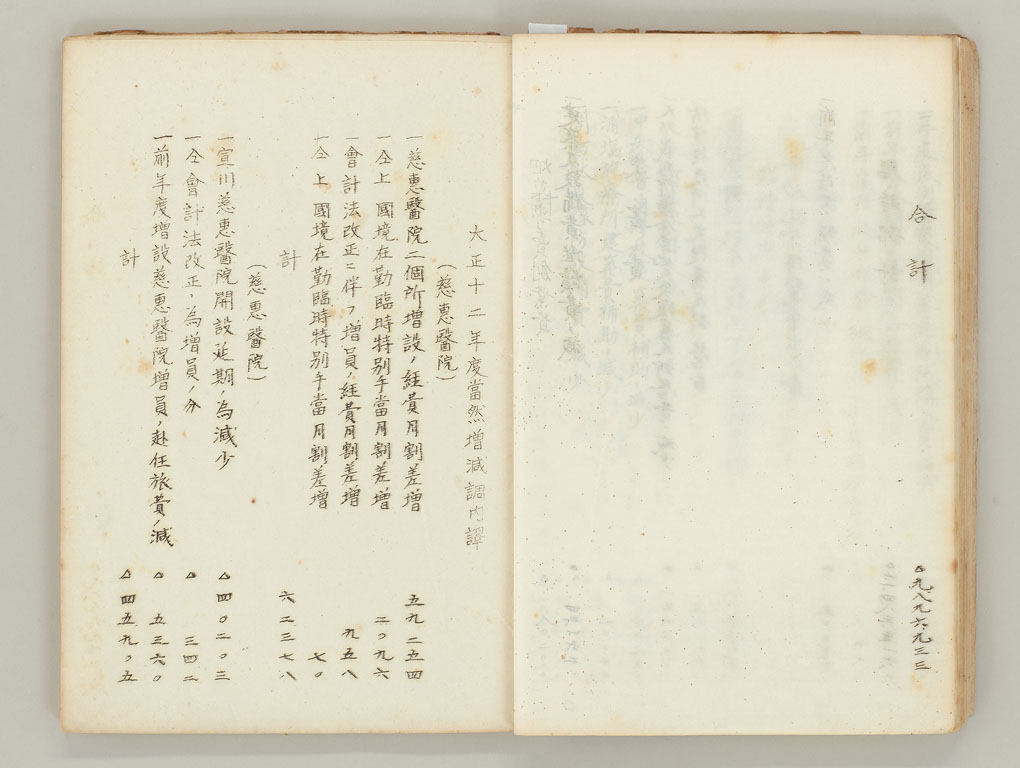 合計 △九八九六九三三
大正十二年度當然増減調内譯
（慈惠醫院）
一慈惠醫院二個所増設ノ經費月割差増 五九二五四
一仝上國境在勤臨時特別手當月割差増 二〇九六
一會計法改正ニ伴フ増員ノ經費月割差増 九五八
一仝上國境在勤臨時特別手當月割差増 七〇
計 六二三七八
（慈惠醫院）
一宣川慈惠醫院開設延期ノ為減少 △四〇二〇三
一仝會計法改正ノ為増員ノ分 △三四二
一前年度増設慈惠醫院増員ノ赴任旅費ノ減 △五三六〇
計 △四五九〇五